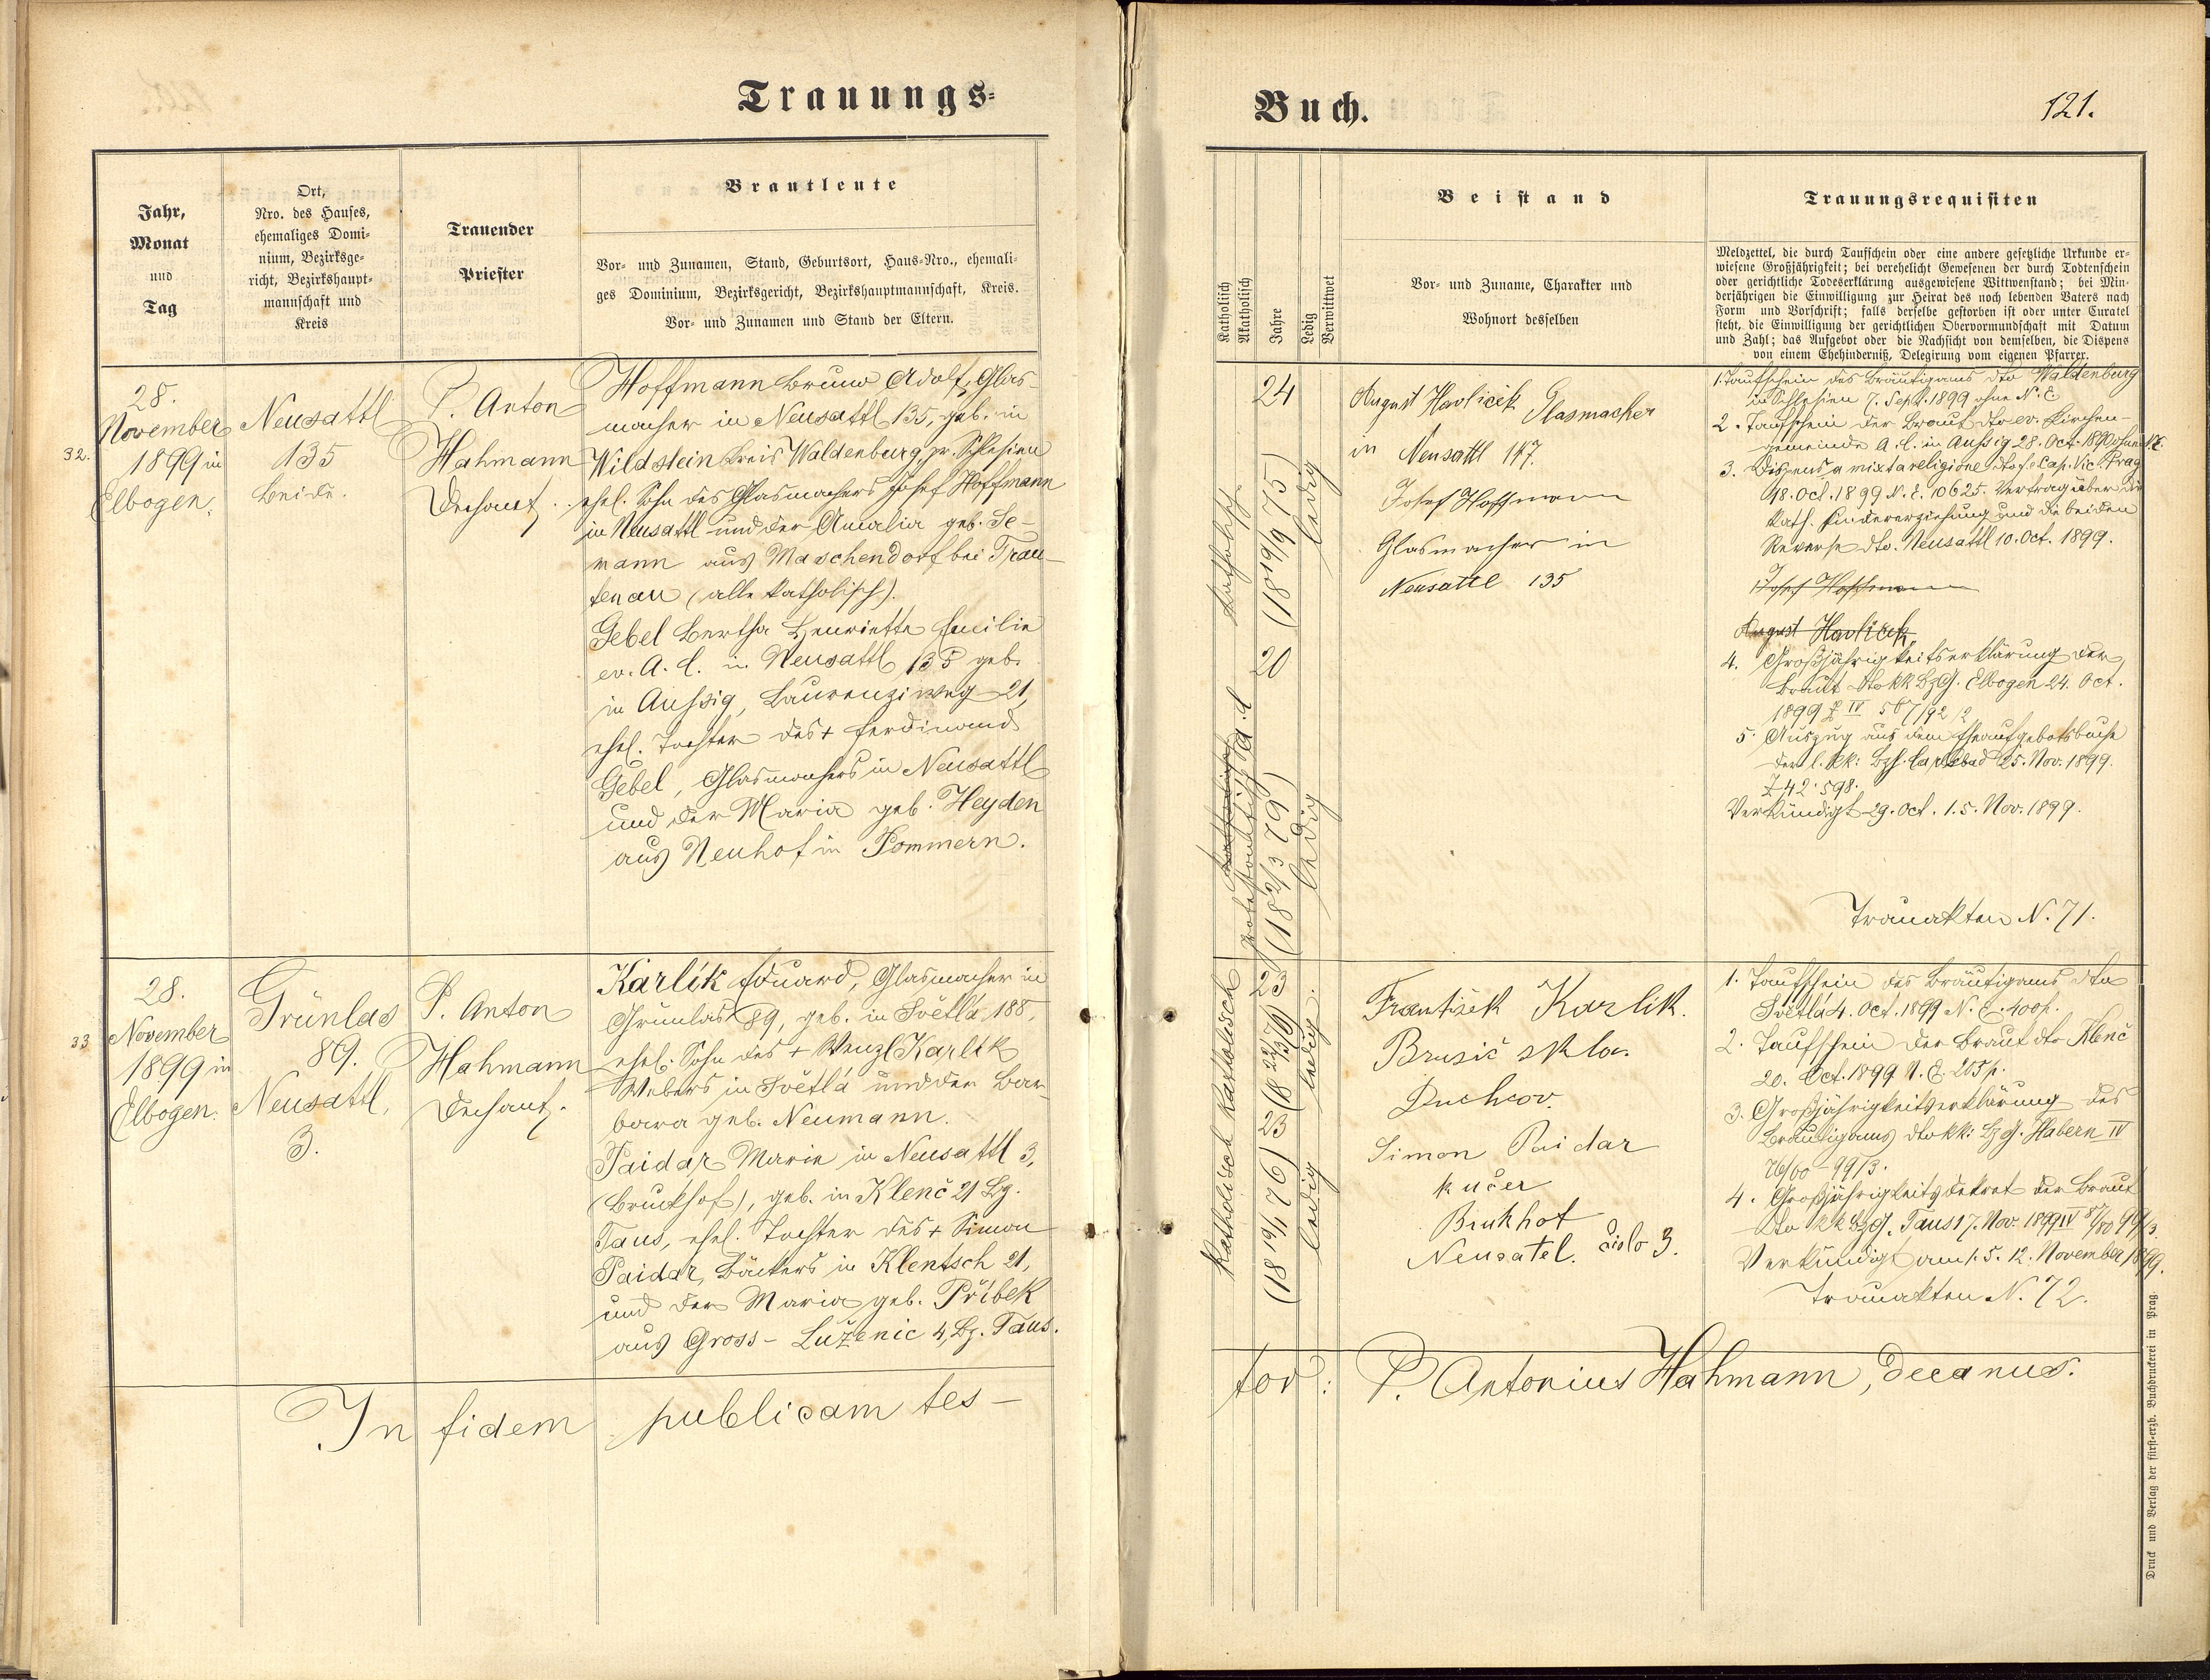 Trauungs=
Jahr,
Monat
und
Tag
Ort,
Nro. des Hauses,
ehemaliges Domi=
nium, Bezirksge=
richt, Bezirkshaupt=
mannschaft und
Kreis
Trauender
Priester
Brautleute
Vor= und Zunamen, Stand, Geburtsort, Haus=Nro., ehemali=
ges Dominium, Bezirksgericht, Bezirkshauptmannschaft, Kreis.
Vor= und Zunamen und Stand der Eltern.
32.
28.
November
1899 in
Elbogen.
Neusattl
135
beide.
P. Anton
Hahmann
Dechant.
Hoffmann Bruno Adolf, Glas-
macher in Neusattl 135, geb. in
Wildstein Kreis Waldenburg, pr. Schlesien
ehel. Sohn des Glasmachers Josef Hoffmann
in Neusattl und der Amalia geb. Se-
mann aus Maschendorf bei Trau-
tenau (alle katholisch).
Gebel Bertha Henriette Emilie
ev. A. C. in Neusattl 135 geb.
in Aussig, Laurenziweg 21,
ehel. Tochter des + Ferdinand
Gebel, Glasmachers in Neusattl
und der Maria geb. Heyden
aus Neuhof in Pommern.
33
28.
November
1899 in
Elbogen.
Grünlas
89.
Neusattl,
3.
P. Anton
Hahmann
Dechant.
Karlík Eduard, Glasmacher in
Grünlas 89, geb. in Světlá 188,
ehel. Sohn des + Wenzl Karlík
Webers in Světlá und der Bar-
bara geb. Neumann.
Paidar Marie in Neusattl 3,
(Bruckhof), geb. in Klenč 21 Bz.
Taus, ehel. Tochter des + Simon
Paidar, Bäckers in Klentsch 21,
und der Maria geb. Přibek
aus Gross-Luženic 4, Bz. Taus.
In fidem publicam tes-
Buch.
121.
Katholisch
Akatholisch
Jahre
Ledig
Verwittwet
Beistand
Vor= und Zuname, Charakter und
Wohnort desselben
Trauungsrequisiten
Meldzettel, die durch Taufschein oder eine andere gesetzliche Urkunde er=
wiesene Großjährigkeit; bei verehelicht Gewesenen der durch Todtenschein
oder gerichtliche Todeserklärung ausgewiesene Wittwenstand; bei Min=
derjährigen die Einwilligung zur Heirat des noch lebenden Vaters nach
Form und Vorschrift; falls derselbe gestorben ist oder unter Curatel
steht, die Einwilligung der gerichtlichen Obervormundschaft mit Datum
und Zahl; das Aufgebot oder die Nachsicht von demselben, die Dispens
von einem Ehehinderniß, Delegirung vom eigenen Pfarrer.
katholisch.
24
(18 19/9 75)
ledig
protestantisch A. C
20
(18 2/3 79)
ledig
August Havlicek Glasmacher
in Neusattl 147.
Josef Hoffmann
Glasmacher in
Neusattl 135
1. Taufschein des Bräutigams dto Waldenburg
in Schlesien 7. Sept. 1899 ohne N. E
2. Taufschein der Braut dto ev. Kirchen-
gemeinde A. C. in Aussig 28. Oct. 1890 ohne N. E.
3. Dispens a mixta religione dto f. e. Cap. Vic. Prag
18. Oct. 1899 N. E. 10625. Vertrag über die
kath. Kindererziehung und die beiden
Reverse dto. Neusattl 10. Oct. 1899.
Josef Hoffmann
August Havlicek
4. Großjährigkeitserklärung der
Braut dto kk BzG. Elbogen 24. Oct.
1899
5. Auszug aus dem Eheaufgebotsbuche
der l. kk: Bzh. Carlsbad 25. Nov. 1899.
Z 42.598.
Verkündigt 29. Oct. 1. 5. Nov. 1899.
Trauakten N. 71.
Katholisch
23
(18 22/7 76)
ledig.
Katholisch
23
(18 19/1 76)
ledig
František Karlik.
Brusič skla.
Duchcov.
Simon Paidar
kučer
Brukhof
Neusatel. čislo 3.
1. Taufschein des Bräutigams dto
Světlá 4. Oct. 1899 N. E. 400 p.
2. Taufschein der Braut dto Klenč
20. Oct. 1899 N. E. 205 p.
3. Großjährigkeitserklärung des
Bräutigams dto kk: BzG. Habern IV
4. Großjährigkeitsdekret der Braut
dto kk BzG. Taus 17. Nov. 1899
Verkündigt am 1. 5. 12. November 1899.
Trauakten N. 72.
tor: P. Antonius Hahmann, decanus.
Druck und Verlag der fürst=erzb. Buchdruckerei in Prag.